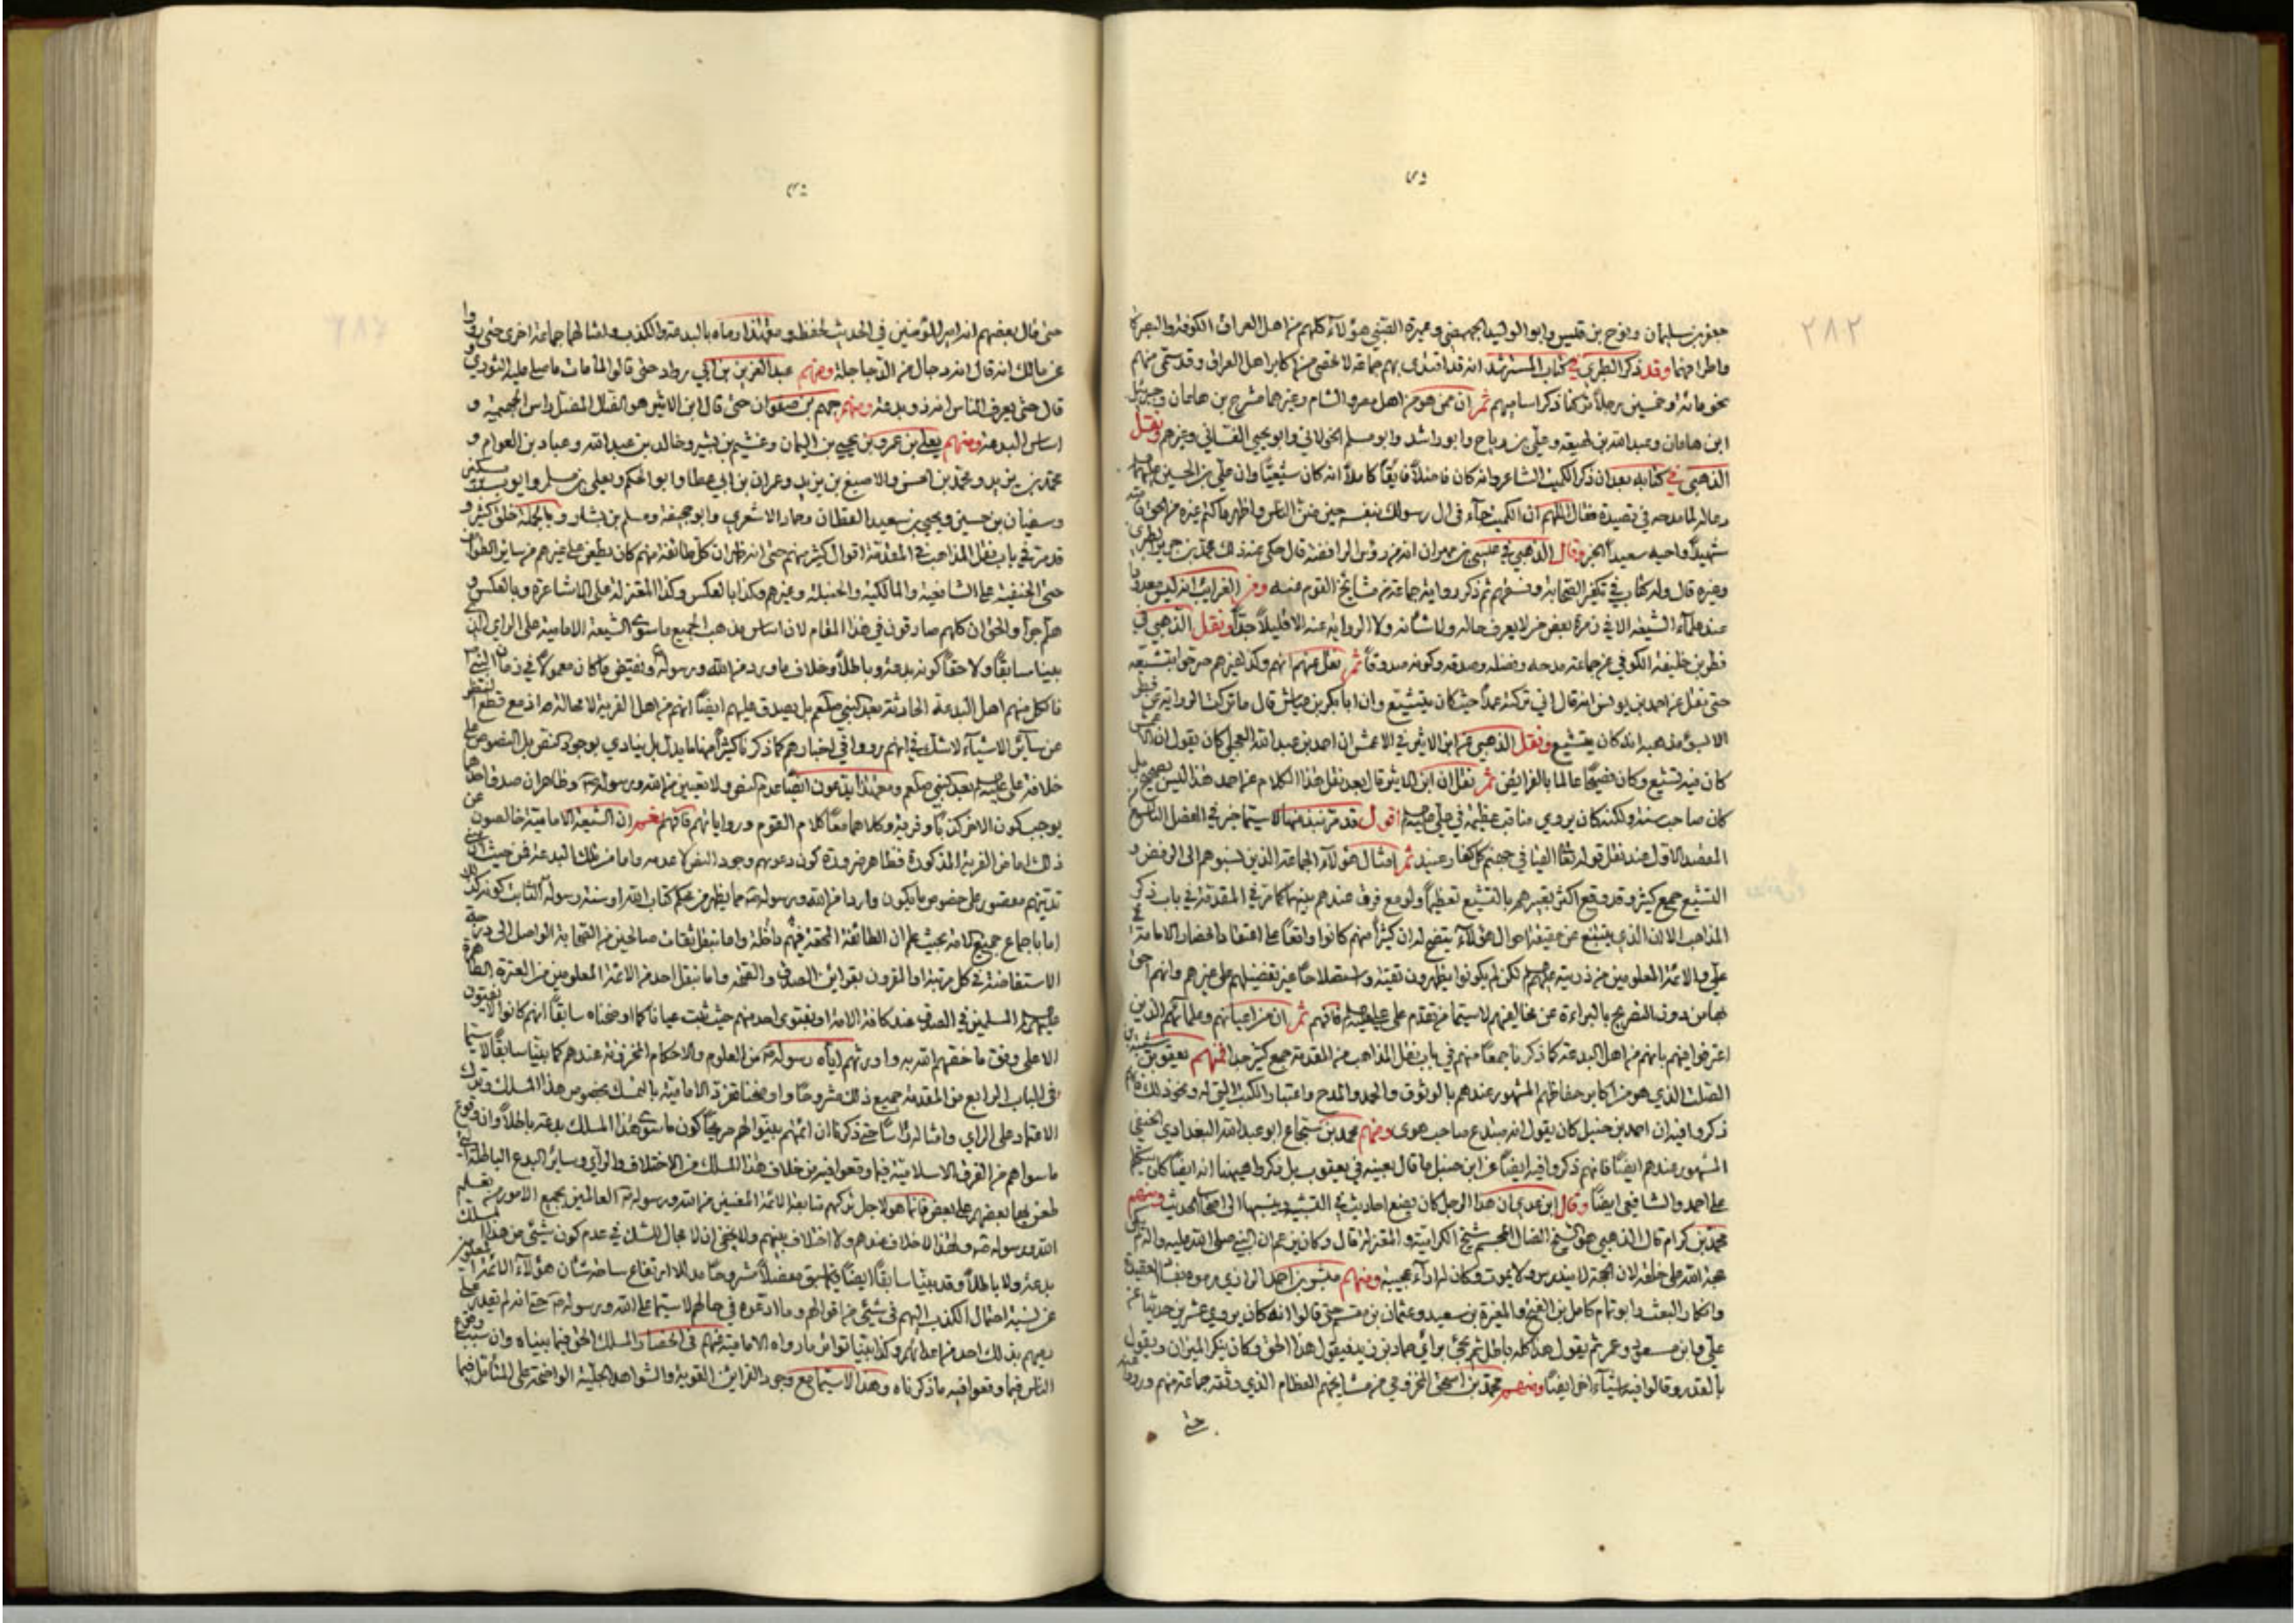 ٢٨٢
جعفر بن سليمان ونوح بن قليس وابو الوليد الجهضمي وعميرة الضبي هؤلاء كلهم من اهل العراق الكوفة والبصرة
واطرافهما وقد ذكر الطبري في كتاب المسترشد انه قد اقتدى بهم جماعة لا تحصى من اكابر اهل العراق وقد سمى منهم
نحو مائة وخمسين رجلا ثم ذكر اساميهم ثم ان ممن هو من اهل مصر والشام وغيرهما مشرح بن هامان
ابن هامان وعبد الله بن لهيعة وعلي بن رباح وابو راشد وابو مسلم الخولاني وابو يحيى الغساني وغيرهم ونقل
الذهبي في كتابه بعد ان ذكر الكميت الشاعر وانه كان فاضلا فايقا كاملا انه كان شيعيا وان علي بن الحسين
دعا له لما مدحه في قصيدة فقال اللهم ان الكميت جاد في ال رسولك بنفسه حين ضن الناس واظهر ما كتم غيره من الحق
شهيدا واحيه سعيدا الخبر وقال الذهبي في عيسى بن مهران انه من رؤس الرافضة قال حكى عنه ذلك محمد بن جرير الطبري
وغيره قال وله كتاب في تكفير الصحابة وفسقهم ثم ذكر رواية جماعة من مشايخ القوم عنه ومن الغرايب انه ليس معدودا
عند علماء الشيعة الا في زمرة بعض من لا يعرف حاله ولا شأنه ولا الرواية عنه الا قليلا جدا ونقل الذهبي في
فطر بن خليفة الكوفي عن جماعة مدحه وفضله وصدقه وكونه صدوقا ثم نقل عنهم انهم وكذا غيرهم صرحوا بتشيعه
حتى نقل عن احمد بن يونس انه قال اني تركته عمدا حيث كان يتشيع وان ابا بكر بن عياش قال ما تركت الرواية عن فطر
الا لسوء مذهبه انه كان يتشيع ونقل الذهبي عن ابن الاثير في الاعمش ان احمد بن عبد الله العجلي كان يقول ان الاعمش
كان فيه تشيع وكان فصيحا عالما بالفرايض ثم نقل ان ابن الاثير قال بعد نقل هذا الكلام عن احمد هذا ليس بصحيح بل
كان صاحب سنة ولكنه كان يروي مناقب عظيمة في علي اقول قد مر نبذ منها لا سيما خبر في الفصل التاسع
المقصد الاول عند نقل قوله تعالى القيا في جهنم كل كفار عنيد ثم امثال هؤلاء الجماعة الذين نسبوهم الى الرفض و
التشيع جمع كثير وقد وقع اكثر تعبيرهم بالتشيع تعظيما ولو مع فرق عندهم بينهما كما مر في المقدمة في باب ذكر
المذاهب الا ان الذي يتتبع عن حقيقة احوال هؤلاء يتضح له ان كثيرا منهم كانوا واقعا على اعتقاد انحصار الامامة في
علي والائمة المعلومين من ذريته لكن لم يكونوا يظهرون تقية واستصلاحا غير تفضيلهم على غيرهم وانهم احق
بها من دون التصريح بالبراءة عن مخالفيهم لا سيما من تقدم على علي فافهم ثم ان من اعيانهم وعلمائهم الذين
اعترفوا فيهم بانهم من اهل البدعة كما ذكرنا جمعا منهم في باب نقل المذاهب من المقدمة جمع كثير جدا فمنهم يعقوب بن شيبة
الصلت الذي هو من اكابر حفاظهم المشهور عندهم بالوثوق والحمد والمدح واعتبار الكتب التي له ونحو ذلك فانهم
ذكروا فيه ان احمد بن حنبل كان يقول انه مبتدع صاحب هوى ومنهم محمد بن شجاع ابو عبد الله البغدادي الحنفي
المشهور عندهم ايضا فانهم ذكروا فيه ايضا عن ابن حنبل ما قال بعينه في يعقوب بل ذكروا هيهنا انه ايضا كان
على احمد والشافعي ايضا وقال ابن عدي ان هذا الرجل كان يضع احاديث في التشبيه وينسبها الى اصحاب الحديث ومنهم
محمد بن كرام قال الذهبي هو الشيخ الضال المجسم شيخ الكرامية والمعتزلة قال وكان يزعم ان النبي صلى الله عليه واله
حجة الله على خلقه لان الحجة لا يندرس ولا يموت وكان له اراء عجيبة ومنهم بن احمد الرازي رموه بفساد العقيدة
وانكار البعث وابو تمام كامل بن الفتح والمغيرة بن سعيد وعثمان بن مقسم حتى قالوا انه كان يروي عشرين حديثا عن
علي وابن مسعود وعمر ثم يقول هذا كله باطل ثم يجئ برأي حماد بن زيد فيقول هذا الحق وكان ينكر الميزان ويقول
بالقدر وقالوا فيه اشياء اخر ايضا ومنهم محمد بن اسحق المخرومي من مشايخهم العظام الذي وثقه جماعة منهم ورووا عنه
حتى
حتى قال بعضهم انه امير المؤمنين في الحديث لحفظه ومع هذا رماه بالبدعة والكذب وامثالهما جماعة اخرى حتى رووا
عن مالك انه قال انه دجال من الدجاجلة ومنهم عبد العزيز بن ابي رواد حتى قالوا لما مات ما صلى عليه الثوري و
قال حتى يعرف الناس انه ذو بدعة ومنهم جهم بن صفوان حتى قال ابن الاثير هو الضال المضل راس الجهمية و
اساس البدعة ومنهم يعلى بن عمرو بن يحيى بن اليمان وهشيم بن بشير وخالد بن عبد الله وعباد بن العوام و
محمد بن يزيد ومحمد بن الحسن والاصبغ بن يزيد وعمران بن ابي عطا وابو الحكم ويعلى بن مسلم وايوب بن مسكين
وسفيان بن حسين ويحيى بن سعيد القطان وحماد الاشعري وابو جحيفة ومسلم بن بشار وبالجملة خلق كثير و
قد مر في باب نقل المذاهب في المقدمة اقوال كثير منهم حتى انه ظهر ان كل طائفة منهم كان يطعن على غيرهم من سائر الطوائف
حتى الحنفية على الشافعية والمالكية والحنبلية وغيرهم وكذا بالعكس وكذا المعتزلة على الاشاعرة وبالعكس و
هلم جرا والحق ان كلهم صادقون في هذا المقام لان اساس مذهب الجميع ما سوى الشيعة الامامية على الراي الذي
بينا سابقا ولا حقا كونه بدعة وباطلا وخلاف ما ورد من الله ورسوله ونقيض ما كان معمولا في زمان النبي
فالكل منهم اهل البدعة الحادثة بعد النبي صلعم بل يصدق عليهم ايضا انهم من اهل الفرية لا محالة اذ مع قطع النظر
عن سائر الاشياء لا شك في انهم رووا في اخبارهم كما ذكرنا كثيرا منها ما يدل بل ينادي بوجود النص بل النصوص على
خلافة علي بعد النبي صلعم ومع هذا يدعون ايضا عدم النص ولا تعيين من الله ورسوله وظاهر ان صدق احدهما
يوجب كون الاخر كذبا وفرية وكلاهما معا كلام القوم ورواياتهم فافهم نعم ان الشيعة الامامية خالصون عن
ذلك اما من الفرية المذكورة فظاهر ضرورة كون دعويهم وجود النص لا عدمه واما من تلك البدعة فمن حيث ان
تدينهم مقصور على خصوص ما يكون واردا من الله ورسوله مما يظهر من محكم كتاب الله او سنة رسوله الثابت كونه كذلك
اما باجماع جميع الامة بحيث علم ان الطائفة المحقة فيهم داخلة واما بنقل ثقات صالحين من الصحابة الواصل الى درجة
الاستفاضة في كل مرتبة او المقرون بقراين الصدق والصحة واما بنقل احد من الائمة المعلومين من العترة الطاهرة
المسلمين في الصدق عند كافة الامة او بفتوى احد منهم حيث ثبت عيانا كما اوضحناه سابقا انهم كانوا لا يفتون
الا على وفق ما خصهم الله به واورثهم اياه رسوله من العلوم والاحكام المخزونة عندهم كما بينا سابقا لا سيما
في الباب الرابع من المقدمة جميع ذلك مشروحا واوضحنا تفرد الامامية بالتمسك بخصوص هذا المسلك وترك
الاعتماد على الراي وامثاله راسا حتى ذكرنا ان ائمتهم بينوا لهم صريحا كون ما سوى هذا المسلك بدعة باطلا وان وقوع
ما سواهم من الفرق الاسلامية فيما وقعوا فيه من خلاف هذا المسلك من الاختلاف والرأي وساير البدع الباطلة التي
طعن بها بعضهم على بعض فانما هو لاجل تركهم متابعة الائمة المعينين من الله ورسوله العالمين بجميع الامور من تعليم
الله ورسوله ولهذا لا خلاف عندهم ولا اختلاف بينهم ولا يخفى ان لا مجال للشك في عدم كون شيئ من هذا المسلك
بدعة ولا باطلا وقد بينا سابقا ايضا فيما سبق مفصلا مشروحا مدللا ارتفاع ساحة شأن هؤلاء الائمة المعلومين
عن نسبة احتمال الكذب اليهم في شيئ من اقوالهم وما ادعوه في حالهم لا سيما على الله ورسوله حتى انه لم يقدر على
رميهم بذلك احد من اعدائهم وكذا بينا تواتر ما رواه الامامية عنهم في انحصار المسلك الحق فيما بيناه وان سبب وقوع
الناس فيما وقعوا فيه ما ذكرناه وهذا لا سيما مع وجود القراين القوية والشواهد الجلية الواضحة على المتأمل فيما